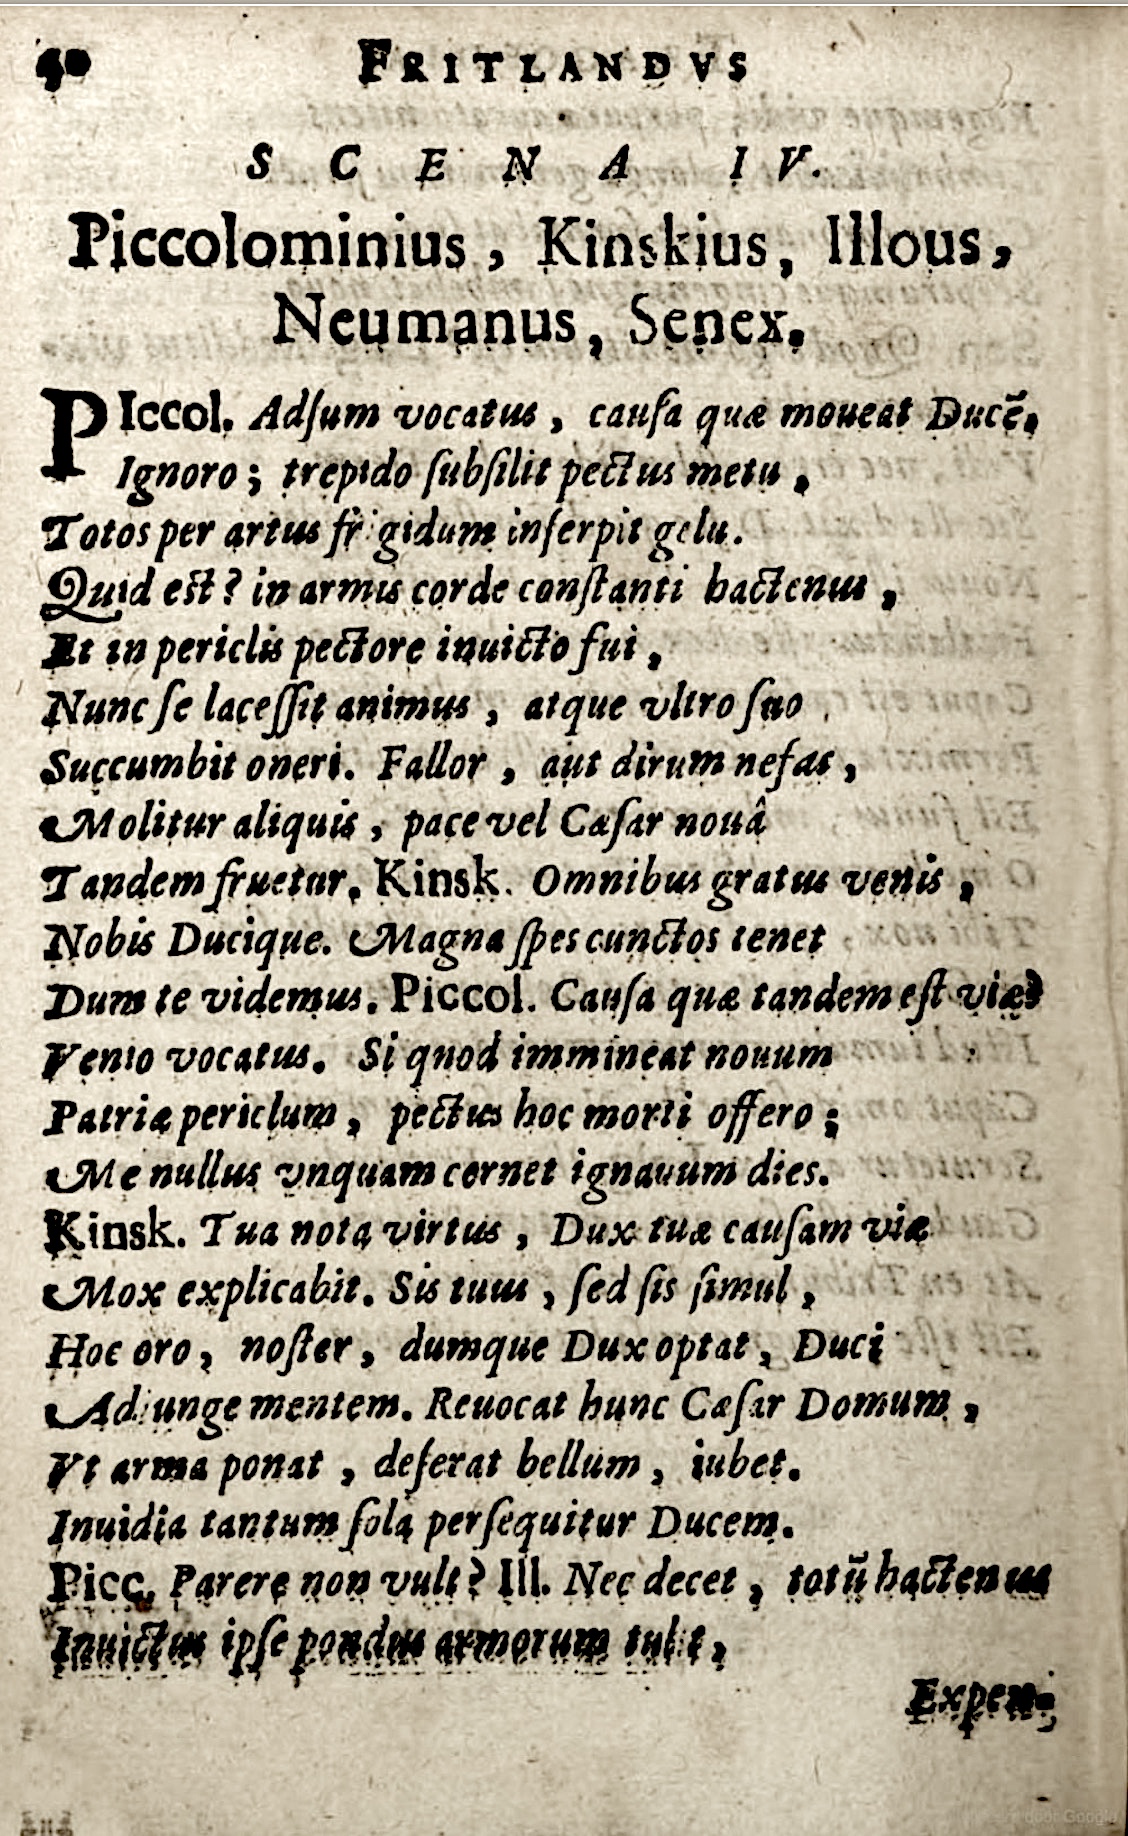 40 FRITLANDVS
SCENA IV.
Piccolominius, Kinskius, Illous,
Neumanus, Senex.
PIccol. Adſum vocatus, cauſa quæ moueat Ducẽ,
Ignoro; trepido ſubſilit pectus metu,
Totos per artus frigidum inſerpit gelu.
Quid eſt? in armis corde conſtanti hactenus,
Et in periclis pectore inuicto fui,
Nunc ſe laceſſit animus, atque vltro ſuo
Succumbit oneri. Fallor, aut dirum nefas,
Molitur aliquis, pace vel Cæſar nouâ
Tandem fruetur. Kinsk. Omnibus gratus venis,
Nobis Ducique. Magna ſpes cunctos tenet
Dum te videmus. Piccol. Cauſa quæ tandem eſt viæ?
Venio vocatus. Si quod immineat nouum
Patriæ periclum, pectus hoc morti offero;
Me nullus vnquam cernet ignauum dies.
Kinsk. Tua nota virtus, Dux tuæ cauſam viæ
Mox explicabit. Sis tuus, ſed ſis ſimul,
Hoc oro, noſter, dumque Dux optat, Duci
Adiunge mentem. Reuocat hunc Cæſar Domum,
Vt arma ponat, deſerat bellum, iubet.
Inuidia tantum ſola perſequitur Ducem.
Picc. Parere non vult? Ill. Nec decet, totũ hactenus
Inuictus ipſe pondus armorum tulit,
Expen-